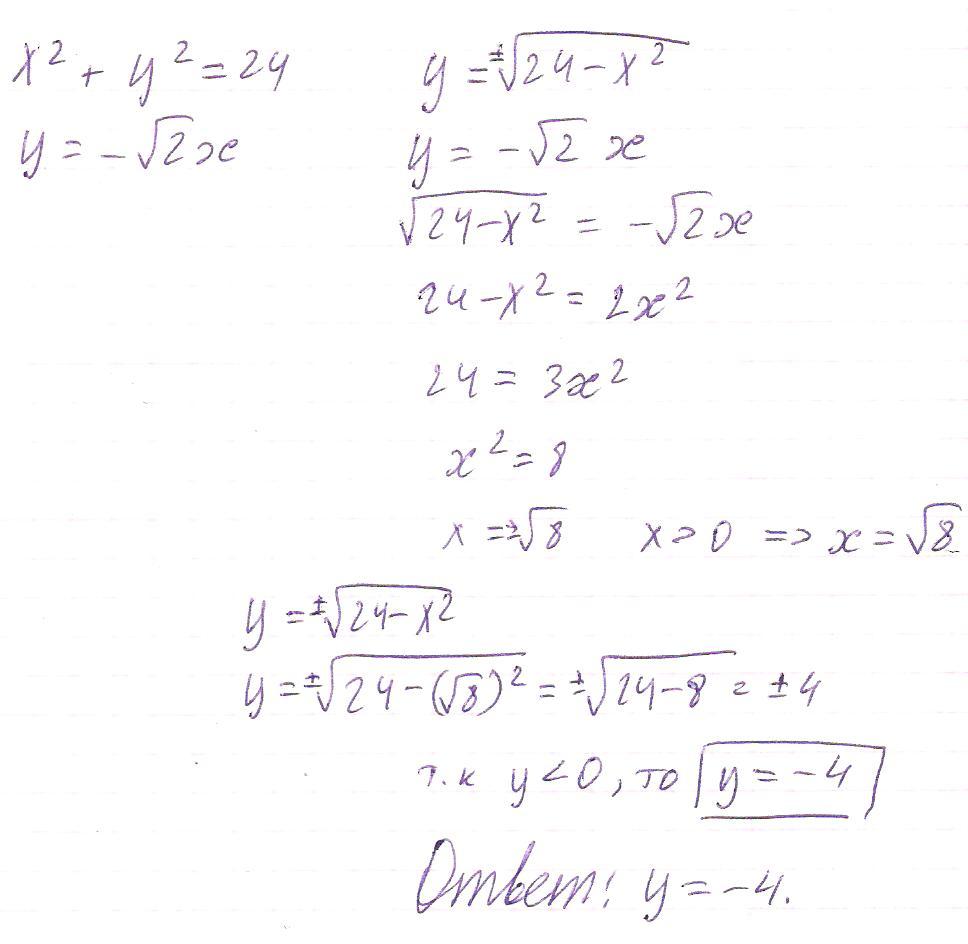 x² + y² = 24
y = -√2x
y = ±√24-x²
y = -√2 x
√24-x² = -√2x
24-x² = 2x²
24 = 3x²
x² = 8
x = ±√8 x > 0 => x = √8
y = ±√24-x²
y = ±√24-(√8)² = ±√24-8 = ±4
т.к y < 0, то y = -4
Ответ: y = -4.